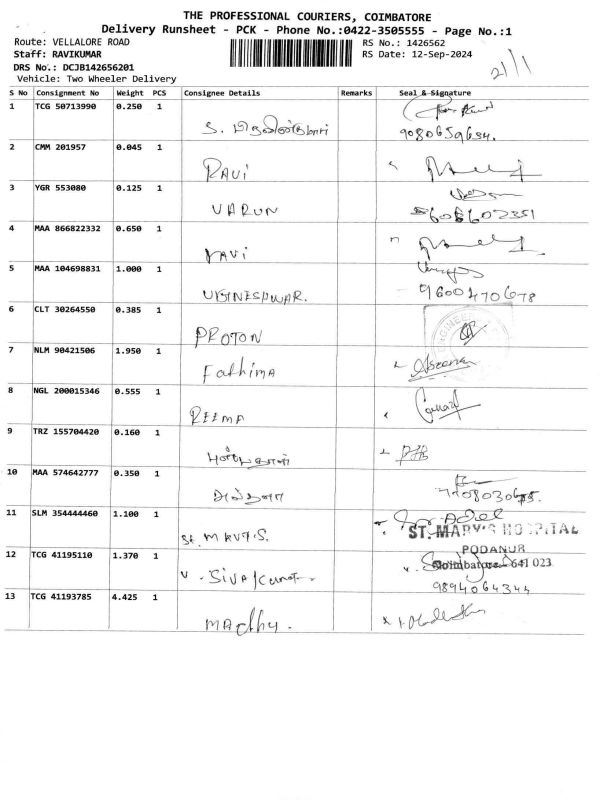 THE PROFESSIONAL COURIERS, COIMBATORE
Delivery Runsheet - PCK - Phone No.:0422-3505555 - Page No.:1
Route: VELLALORE ROAD RS No.: 1426562
Staff: RAVIKUMAR RS Date: 12-Sep-2024
DRS No.: DCJB142656201
Vehicle: Two Wheeler Delivery
S No Consignment No Weight PCS Consignee Details Remarks Seal & Signature
1 TCG 50713990 0.250 1
9080659684.
2 CMM 201957 0.045 1
RAVi
3 YGR 553080 0.125 1
VARUN
4 MAA 866822332 0.650 1
RAVi
5 MAA 104698831 1.000 1
VIGINESHWAR. 9600470678
6 CLT 30264550 0.385 1
PROTON
7 NLM 90421506 1.950 1
FathimA
8 NGL 200015346 0.555 1
REEMA
9 TRZ 155704420 0.160 1
10 MAA 574642777 0.350 1
11 SLM 354444460 1.100 1
ST. MARY'S HOSPITAL
PODANUR
12 TCG 41195110 1.370 1
Coimbatore - 641 023
9894064344
13 TCG 41193785 4.425 1
MAdhu.